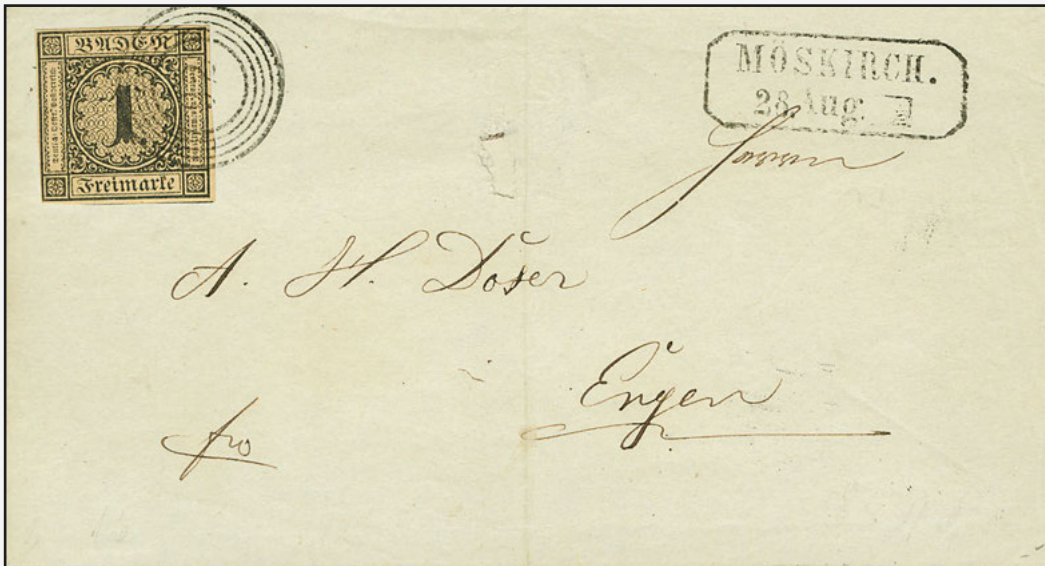 BADEN
1
Freimarke
MÖSKIRCH.
28 Aug.
Herrn
A. H. Doser
Engen
fro